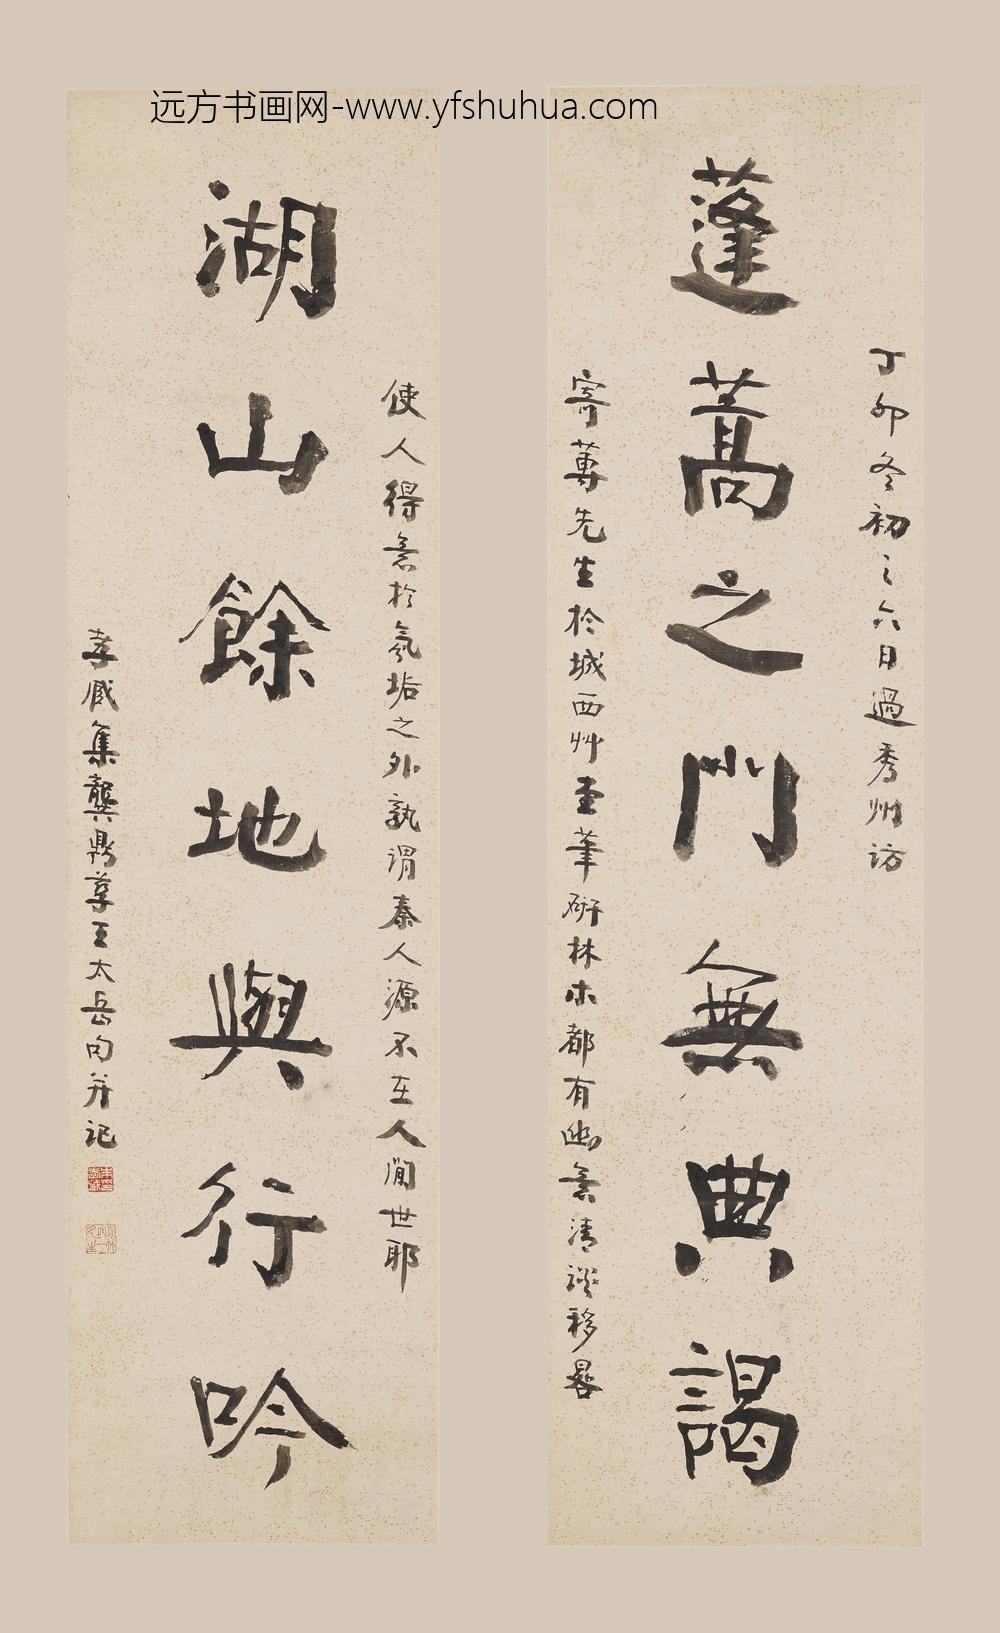 远方书画网-www.yfshuhua.com
蓬蒿之門無典謁
丁卯冬初之六日過秀州访
寄蓴先生於城西艸堂筆硏林木都有幽意清談移晷
湖山餘地與行吟
使人得意於氛垢之外孰谓秦人源不在人間世耶
孝臧集龔鼎孳王太岳句并记